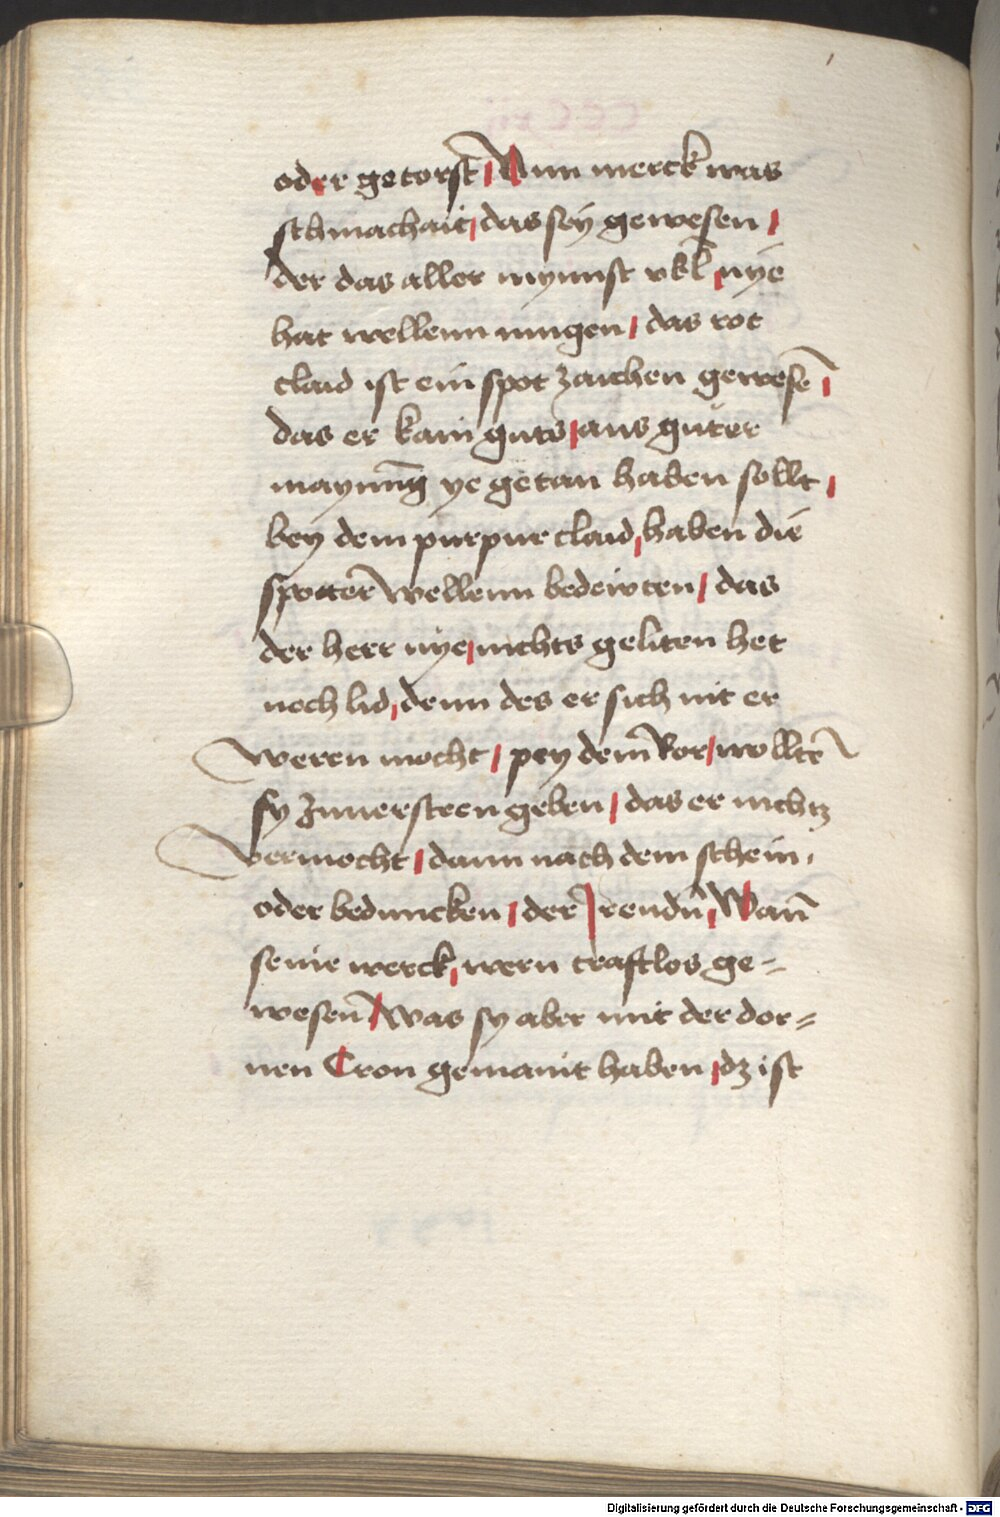 oder getorst̄ / Nun merck was
schmachait / das sey gewesen /
der das aller mynnst vbl̄ / nye
hat wellenn mugen / das rot
claid ist ein spot zaichen gewesē /
das er kain guts / aus guter
maynūg ye getan haben sollt /
bey dem purpur claid / haben die
spotter wellenn bedewten / das
der herr nye / nichts geliten het
noch lid / denn des er sich nit er
weren mocht / pey dem̄ Ror / wolltē
sy Zuuersteen geben / das er nichtz
vermocht / dann nach dem schein.
oder beduncken / der Irendn̄ / Wan̄
seine werck / wern craftlos ge=
wesen̄ / Was sy aber mit der dor=
nen Cron gemaint haben / dz ist
Digitalisierung gefördert durch die Deutsche Forschungsgemeinschaft - DFG